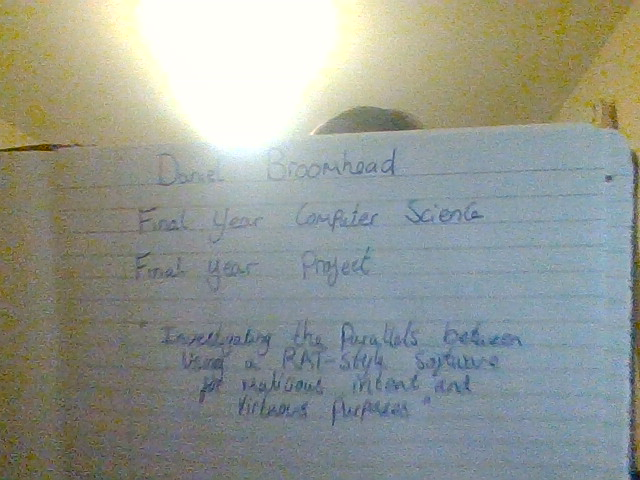 Daniel Broomhead
Final Year Computer Science
Final Year Project
"Investigating the Parallels between
Using a RAT-Style Software
for malicious intent and
Virtuous Purposes"